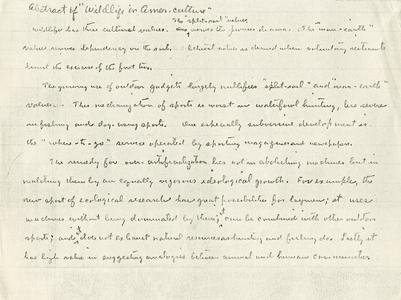 Abstract of "Wildlife in Amer. culture"
The "split-rail" values
Wildlife has three cultural values. revives the pioneer drama. The "man-earth"
value revives dependency on the soil. Ethical value is derived when voluntary restraints
limit the exercise of the first two.
The growing use of outdoor gadgets largely nullifies "split-rail" and "man-earth"
values. The mechanization of sports is worst in waterfowl hunting, less severe
in fishing and dog-using sports. One especially subversive development is
the "where-to-go" service operated by sporting magazines and newspapers.
The remedy for over-artificialization lies not in abolishing machines but in
matching them by an equally vigorous ideological growth. For example, the
new sport of ecological research has great possibilities for laymen; it uses
machines without being dominated by them; it can be combined with other outdoor
sports; and it does not exhaust natural resources as hunting and fishing do. Lastly, it
has high value in suggesting analogies between animal and human communities